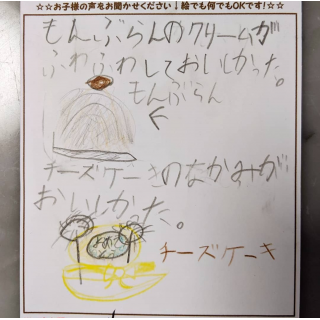 ☆☆お子様の声をお聞かせください↓絵でも何でもOKです!☆☆
もんぶらんのクリームが
ふわふわしておいしかった。
もんぶらん
チーズケーキのなかみが
おいしかった。
チーズケーキ